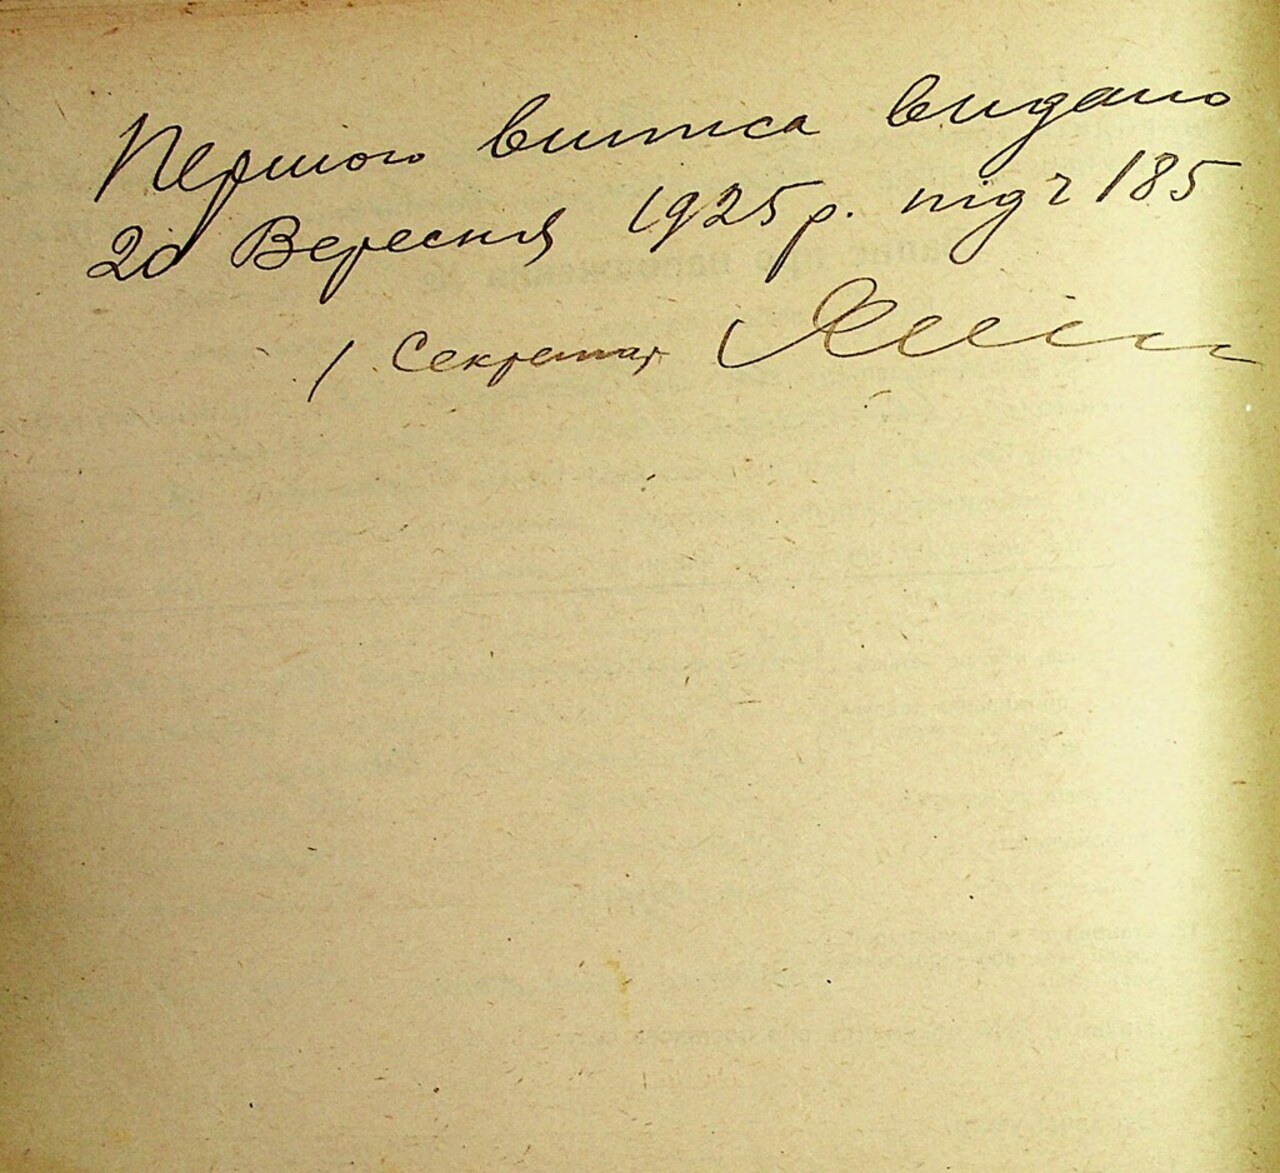 Першого витяса видано
20 Вересня 1925 р. під ч 185
Секретар